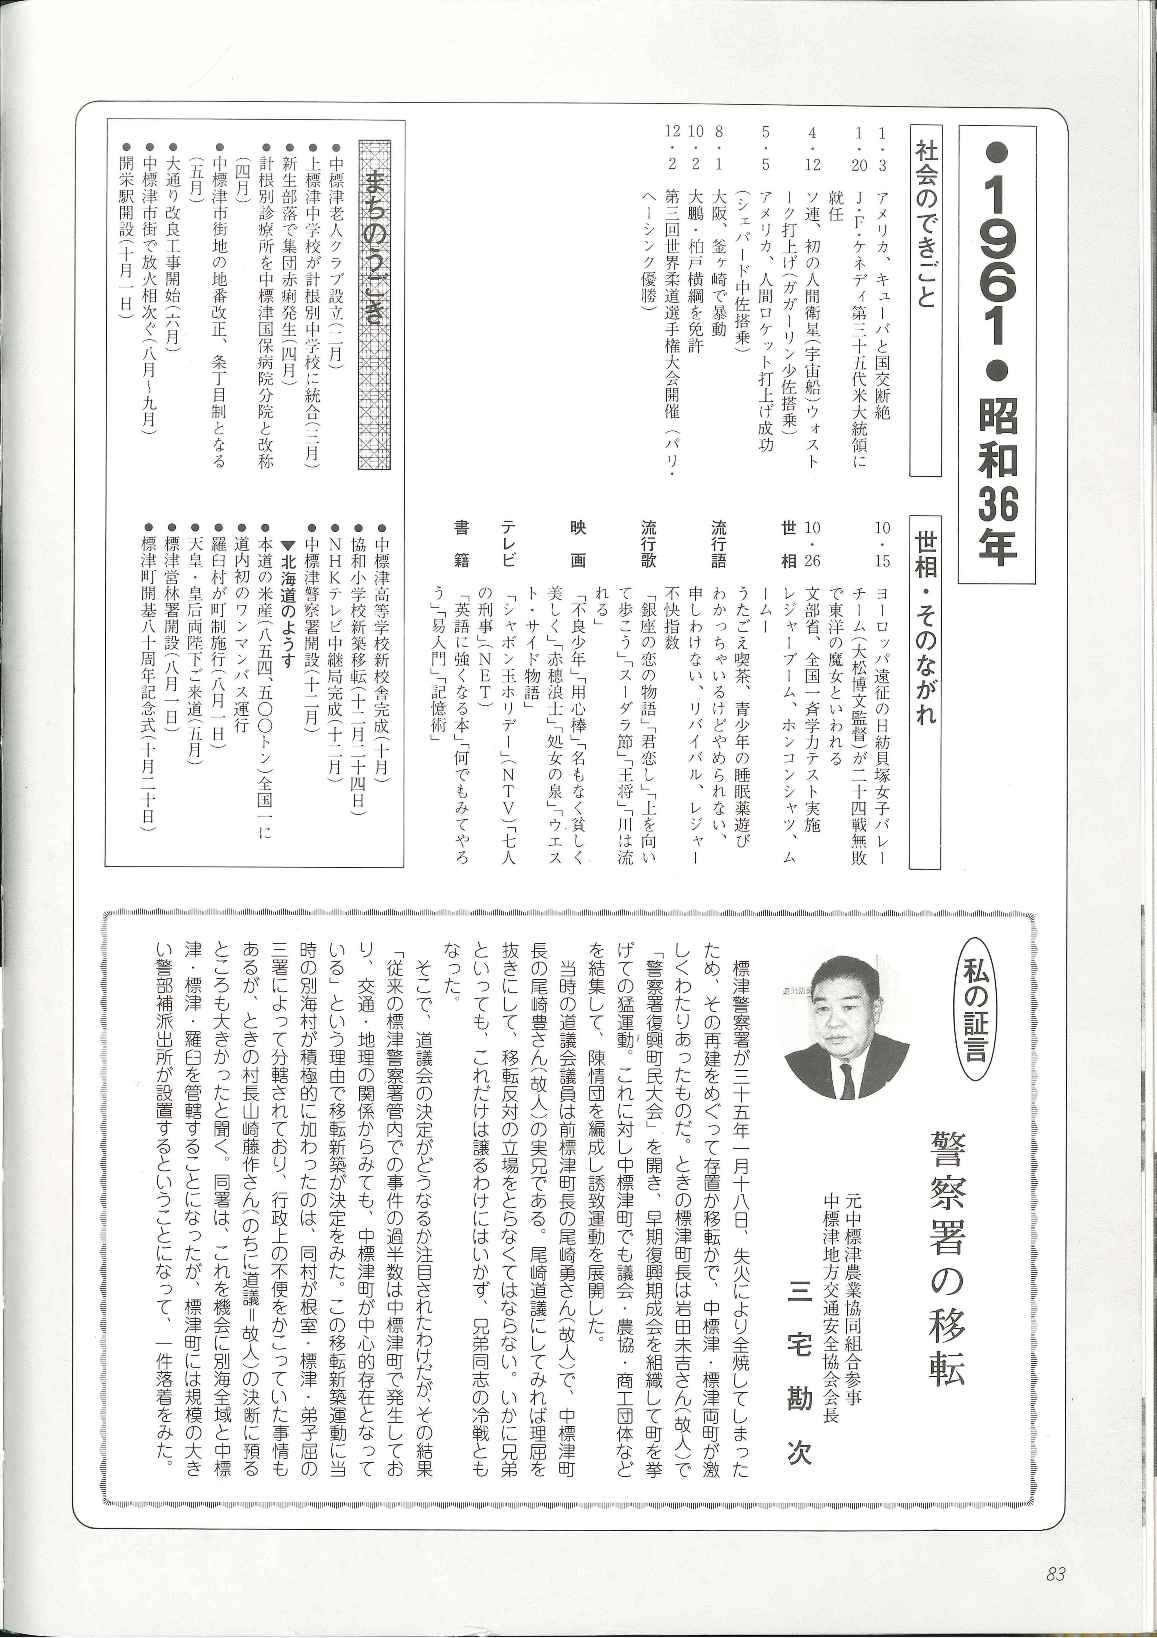 ●1961●昭和36年
社会のできごと
1・3 アメリカ、キューバと国交断絶
1・20 J・F・ケネディ第三十五代米大統領に
就任
4・12 ソ連、初の人間衛星(宇宙船)ウォスト
ーク打上げ(ガガーリン少佐搭乗)
5・5 アメリカ、人間ロケット打上げ成功
(シェパード中佐搭乗)
8・1 大阪、釜ヶ崎で暴動
10・2 大鵬・柏戸横綱を免許
12・2 第三回世界柔道選手権大会開催(パリ・
ヘーシンク優勝)
世相・そのながれ
10・15 ヨーロッパ遠征の日紡貝塚女子バレー
チーム(大松博文監督)が二十四戦無敗
で東洋の魔女といわれる
10・26 文部省、全国一斉学力テスト実施
世相 レジャーブーム、ホンコンシャツ、ム
ームー
うたごえ喫茶、青少年の睡眠薬遊び
流行語 わかっちゃいるけどやめられない、
申しわけない、リバイバル、レジャー
不快指数
流行歌 「銀座の恋の物語」「君恋し」「上を向い
て歩こう」「スーダラ節」「王将」「川は流
れる」
映画 「不良少年」「用心棒」「名もなく貧しく
美しく」「赤穂浪士」「処女の泉」「ウエス
ト・サイド物語」
テレビ 「シャボン玉ホリデー」(NTV)「七人
の刑事」(NET)
書籍 「英語に強くなる本」「何でもみてやろ
う」「易入門」「記憶術」
まちのうごき
●中標津老人クラブ設立(二月)
●上標津中学校が計根別中学校に統合(三月)
●新生部落で集団赤痢発生(四月)
●計根別診療所を中標津国保病院分院と改称
(四月)
●中標津市街地の地番改正、条丁目制となる
(五月)
●大通り改良工事開始(六月)
●中標津市街で放火相次ぐ(八月〜九月)
●開栄駅開設(十月一日)
●中標津高等学校新校舎完成(十月)
●協和小学校新築移転(十二月二十四日)
●NHKテレビ中継局完成(十二月)
●中標津警察署開設(十二月)
▼北海道のようす
●本道の米産(八五四、五〇〇トン)全国一に
●道内初のワンマンバス運行
●羅臼村が町制施行(八月一日)
●天皇・皇后両陛下ご来道(五月)
●標津営林署開設(八月一日)
●標津町開基八十周年記念式(十月二十日)
私の証言
警察署の移転
元中標津農業協同組合参事
中標津地方交通安全協会会長
三宅勘次
標津警察署が三十五年一月十八日、失火により全焼してしまった
ため、その再建をめぐって存置か移転かで、中標津・標津両町が激
しくわたりあったものだ。ときの標津町長は岩田末吉さん(故人)で
「警察署復興町民大会」を開き、早期復興期成会を組織して町を挙
げての猛運動。これに対し中標津町でも議会・農協・商工団体など
を結集して、陳情団を編成し誘致運動を展開した。
当時の道議会議員は前標津町長の尾崎勇さん(故人)で、中標津町
長の尾崎豊さん(故人)の実兄である。尾崎道議にしてみれば理屈を
抜きにして、移転反対の立場をとらなくてはならない。いかに兄弟
といっても、これだけは譲るわけにはいかず、兄弟同志の冷戦とも
なった。
そこで、道議会の決定がどうなるか注目されたわけだが、その結果
「従来の標津警察署管内での事件の過半数は中標津町で発生してお
り、交通・地理の関係からみても、中標津町が中心的存在となって
いる」という理由で移転新築が決定をみた。この移転新築運動に当
時の別海村が積極的に加わったのは、同村が根室・標津・弟子屈の
三署によって分轄されており、行政上の不便をかこっていた事情も
あるが、ときの村長山崎藤作さん(のちに道議=故人)の決断に預る
ところも大きかったと聞く。同署は、これを機会に別海全域と中標
津・標津・羅臼を管轄することになったが、標津町には規模の大き
い警部補派出所が設置するということになって、一件落着をみた。
83